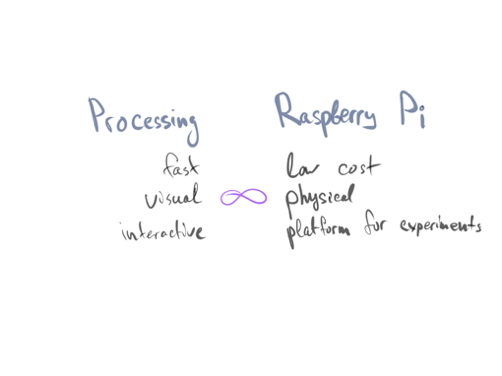 Processing
fast
visual
interactive
Raspberry Pi
low cost
physical
platform for experiments